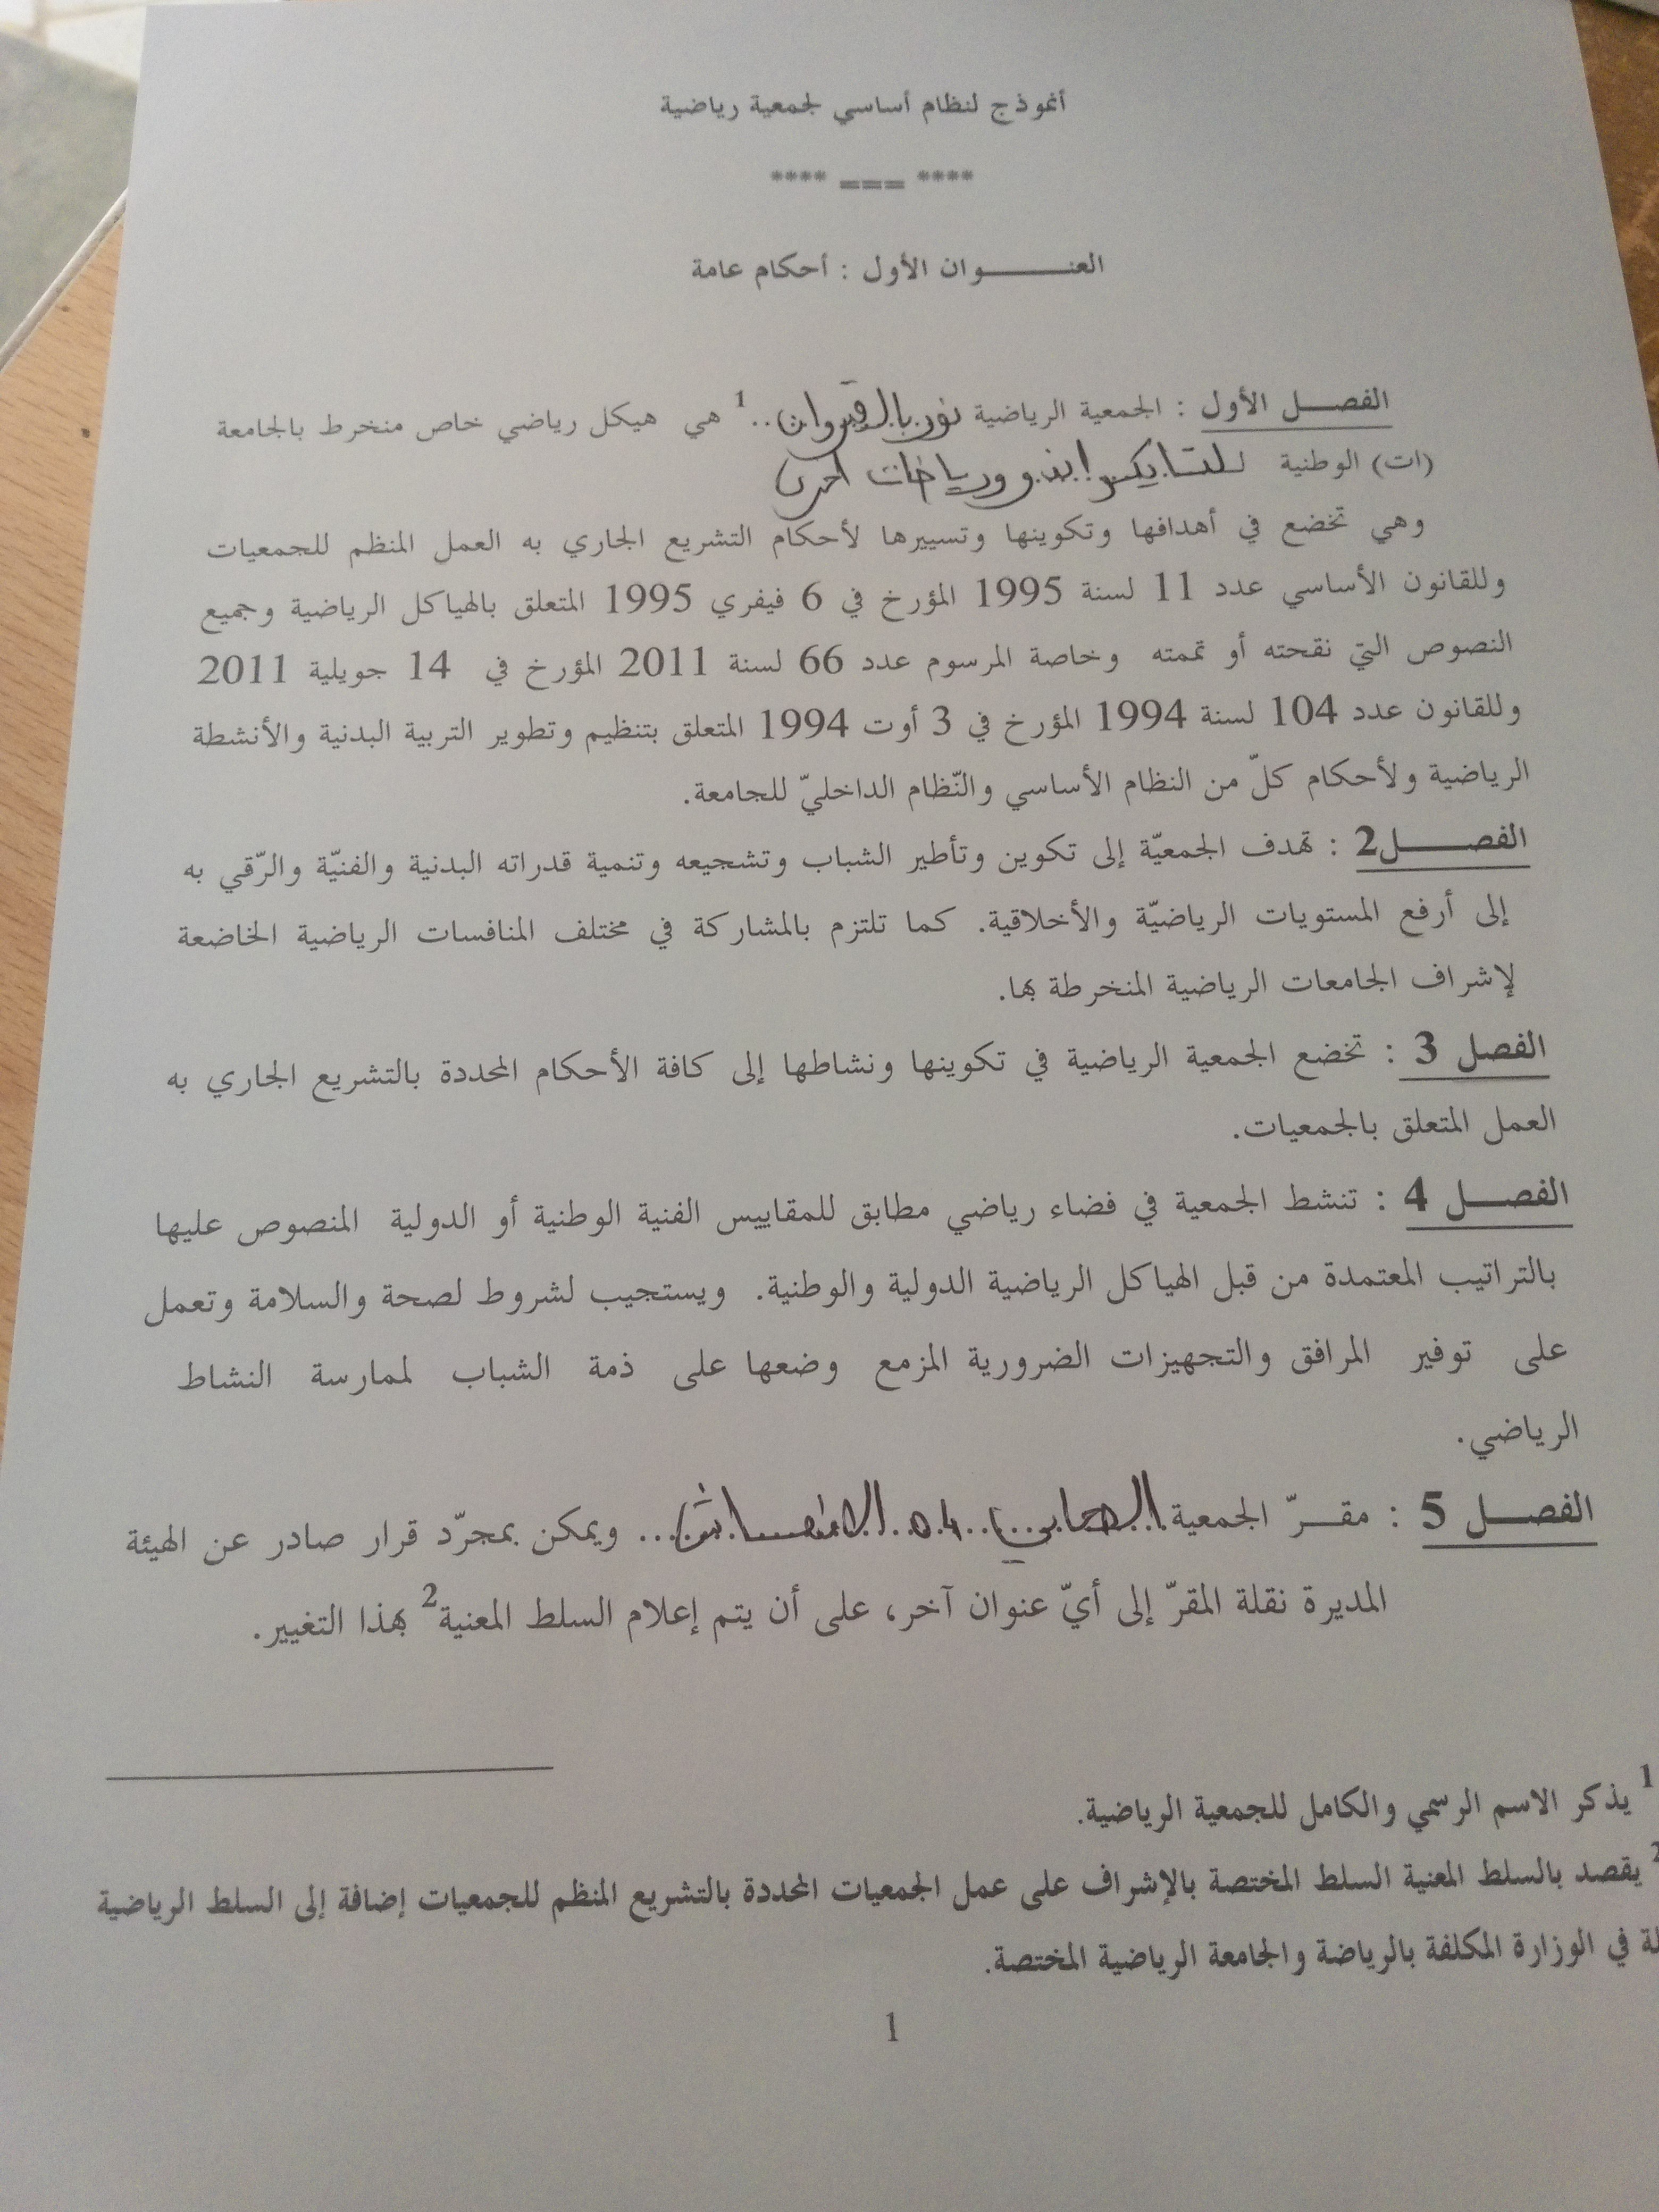 أنموذج لنظام أساسي لجمعية رياضية
**** === ****
العنـــــوان الأول : أحكام عامة
الفصـــل الأول : الجمعية الرياضية نور بالقيروان..1 هي هيكل رياضي خاص منخرط بالجامعة
(ات) الوطنية للتايكواندو ورياضات أخرى
وهي تخضع في أهدافها وتكوينها وتسييرها لأحكام التشريع الجاري به العمل المنظم للجمعيات
وللقانون الأساسي عدد 11 لسنة 1995 المؤرخ في 6 فيفري 1995 المتعلق بالهياكل الرياضية وجميع
النصوص التي نقحته أو تممته وخاصة المرسوم عدد 66 لسنة 2011 المؤرخ في 14 جويلية 2011
وللقانون عدد 104 لسنة 1994 المؤرخ في 3 أوت 1994 المتعلق بتنظيم وتطوير التربية البدنية والأنشطة
الرياضية ولأحكام كلّ من النظام الأساسي والنّظام الداخليّ للجامعة.
الفصـــــل2 : تهدف الجمعيّة إلى تكوين وتأطير الشباب وتشجيعه وتنمية قدراته البدنية والفنيّة والرّقي به
إلى أرفع المستويات الرياضيّة والأخلاقية. كما تلتزم بالمشاركة في مختلف المنافسات الرياضية الخاضعة
لإشراف الجامعات الرياضية المنخرطة بها.
الفصل 3 : تخضع الجمعية الرياضية في تكوينها ونشاطها إلى كافة الأحكام المحددة بالتشريع الجاري به
العمل المتعلق بالجمعيات.
الفصـــل 4 : تنشط الجمعية في فضاء رياضي مطابق للمقاييس الفنية الوطنية أو الدولية المنصوص عليها
بالتراتيب المعتمدة من قبل الهياكل الرياضية الدولية والوطنية. ويستجيب لشروط لصحة والسلامة وتعمل
على توفير المرافق والتجهيزات الضرورية المزمع وضعها على ذمة الشباب لممارسة النشاط
الرياضي.
الفصـــل 5 : مقـــرّ الجمعية ... ويمكن بمجرّد قرار صادر عن الهيئة
المديرة نقلة المقرّ إلى أيّ عنوان آخر، على أن يتم إعلام السلط المعنية2 بهذا التغيير.
1 يذكر الاسم الرسمي والكامل للجمعية الرياضية.
2 يقصد بالسلط المعنية السلط المختصة بالإشراف على عمل الجمعيات المحددة بالتشريع المنظم للجمعيات إضافة إلى السلط الرياضية
في الوزارة المكلفة بالرياضة والجامعة الرياضية المختصة.
1